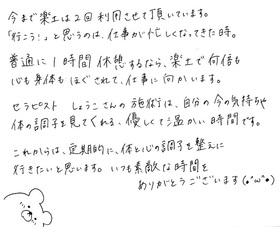 今まで楽土は2回利用させて頂いています。
「行こう！」と思うのは、仕事が忙しくなってきた時。
普通に1時間休憩するなら、楽土で何倍も
心も身体もほぐされて、仕事に向かいます。
セラピスト しょうこさんの施術は、自分の今の気持ちや
体の調子を見てくれる、優しくて温かい時間です。
これからは、定期的に、体と心の調子を整えに
行きたいと思います。いつも素敵な時間を
ありがとうございます(●'ω'●)